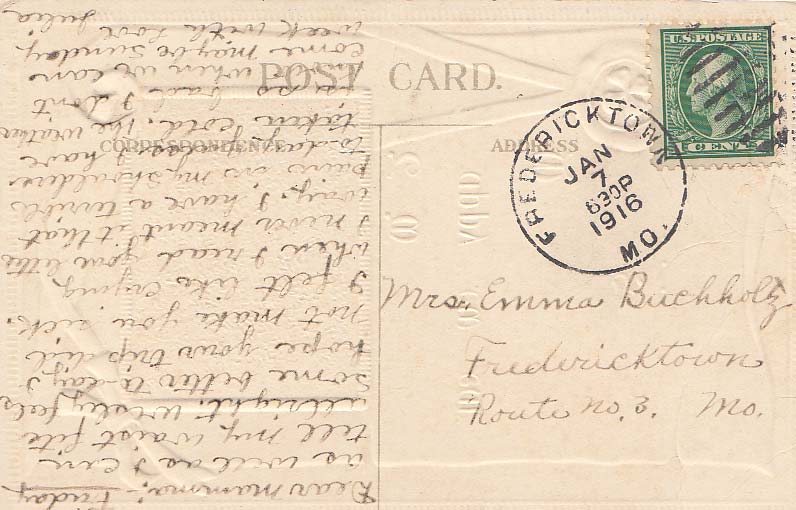 POST CARD.
CORRESPONDENCE
ADDRESS
U.S. POSTAGE
1 CENT 1
FREDERICKTOWN
JAN
7
630P
1916
MO.
Mrs. Emma Buchholz
Fredericktown
Route no. 3. Mo.
Dear Mamma:- Friday
as well as I can
tell my waist fits
allright. Wesley feels
some better to-day. I
hope your trip did
not make you sick.
I felt like crying
when I read your letter
I never meant it that
way. I have a terrible
pain in my shoulders
to-day guess I have
taken cold. The weather
is so bad I don't
know when we can
come maybe Sunday
week with love
Julia